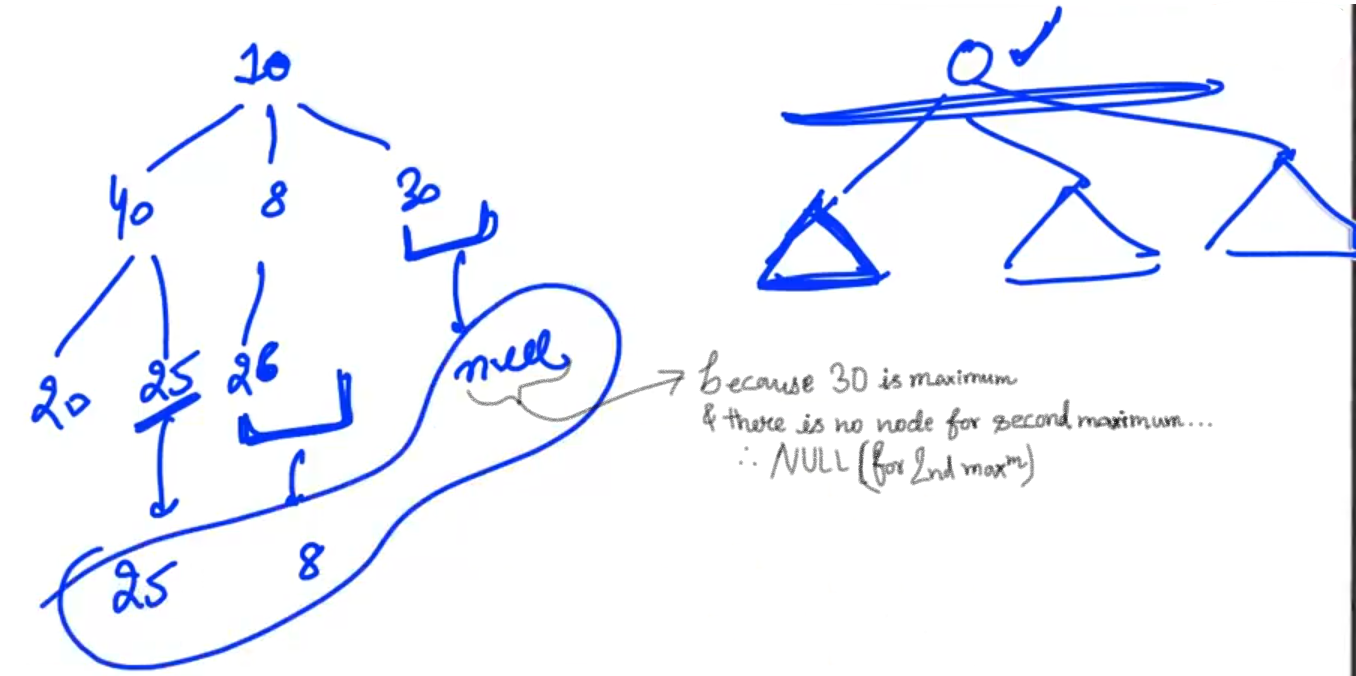 10
40 8 30
20 25 26
null
because 30 is maximum
& there is no node for second maximum...
∴ NULL (for 2nd maxᵐ)
25 8